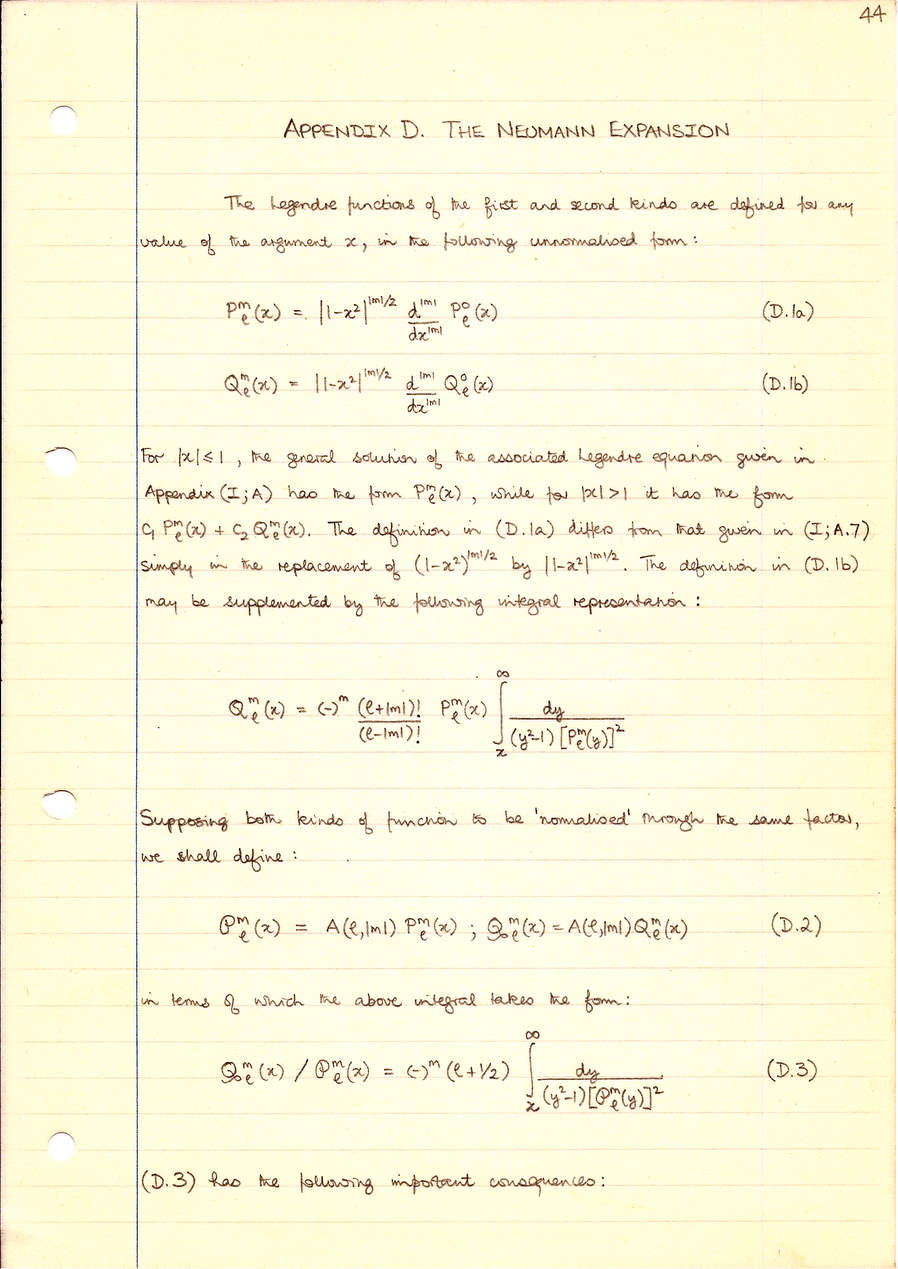 44
APPENDIX D. THE NEUMANN EXPANSION
The Legendre functions of the first and second kinds are defined for any
value of the argument x, in the following unnormalised form:
P_ℓ^m(x) = |1-x²|^{|m|/2} d^{|m|}/dx^{|m|} P_ℓ^0(x) (D.1a)
Q_ℓ^m(x) = |1-x²|^{|m|/2} d^{|m|}/dx^{|m|} Q_ℓ^0(x) (D.1b)
For |x| ≤ 1, the general solution of the associated Legendre equation given in
Appendix (I;A) has the form P_ℓ^m(x), while for |x| > 1 it has the form
C₁ P_ℓ^m(x) + C₂ Q_ℓ^m(x). The definition in (D.1a) differs from that given in (I;A.7)
simply in the replacement of (1-x²)^{|m|/2} by |1-x²|^{|m|/2}. The definition in (D.1b)
may be supplemented by the following integral representation:
Q_ℓ^m(x) = (-)^m (ℓ+|m|)!/(ℓ-|m|)! P_ℓ^m(x) ∫_x^∞ dy/((y²-1)[P_ℓ^m(y)]²)
Supposing both kinds of function to be 'normalised' through the same factor,
we shall define:
𝒫_ℓ^m(x) = A(ℓ,|m|) P_ℓ^m(x) ; 𝒬_ℓ^m(x) = A(ℓ,|m|) Q_ℓ^m(x) (D.2)
in terms of which the above integral takes the form:
𝒬_ℓ^m(x) / 𝒫_ℓ^m(x) = (-)^m (ℓ+1/2) ∫_x^∞ dy/((y²-1)[𝒫_ℓ^m(y)]²) (D.3)
(D.3) has the following important consequences: